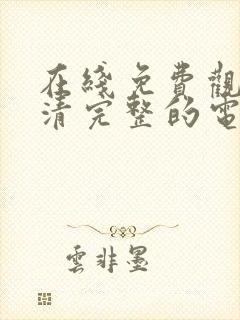 在綫免費觀
清完整的電
雲非墨